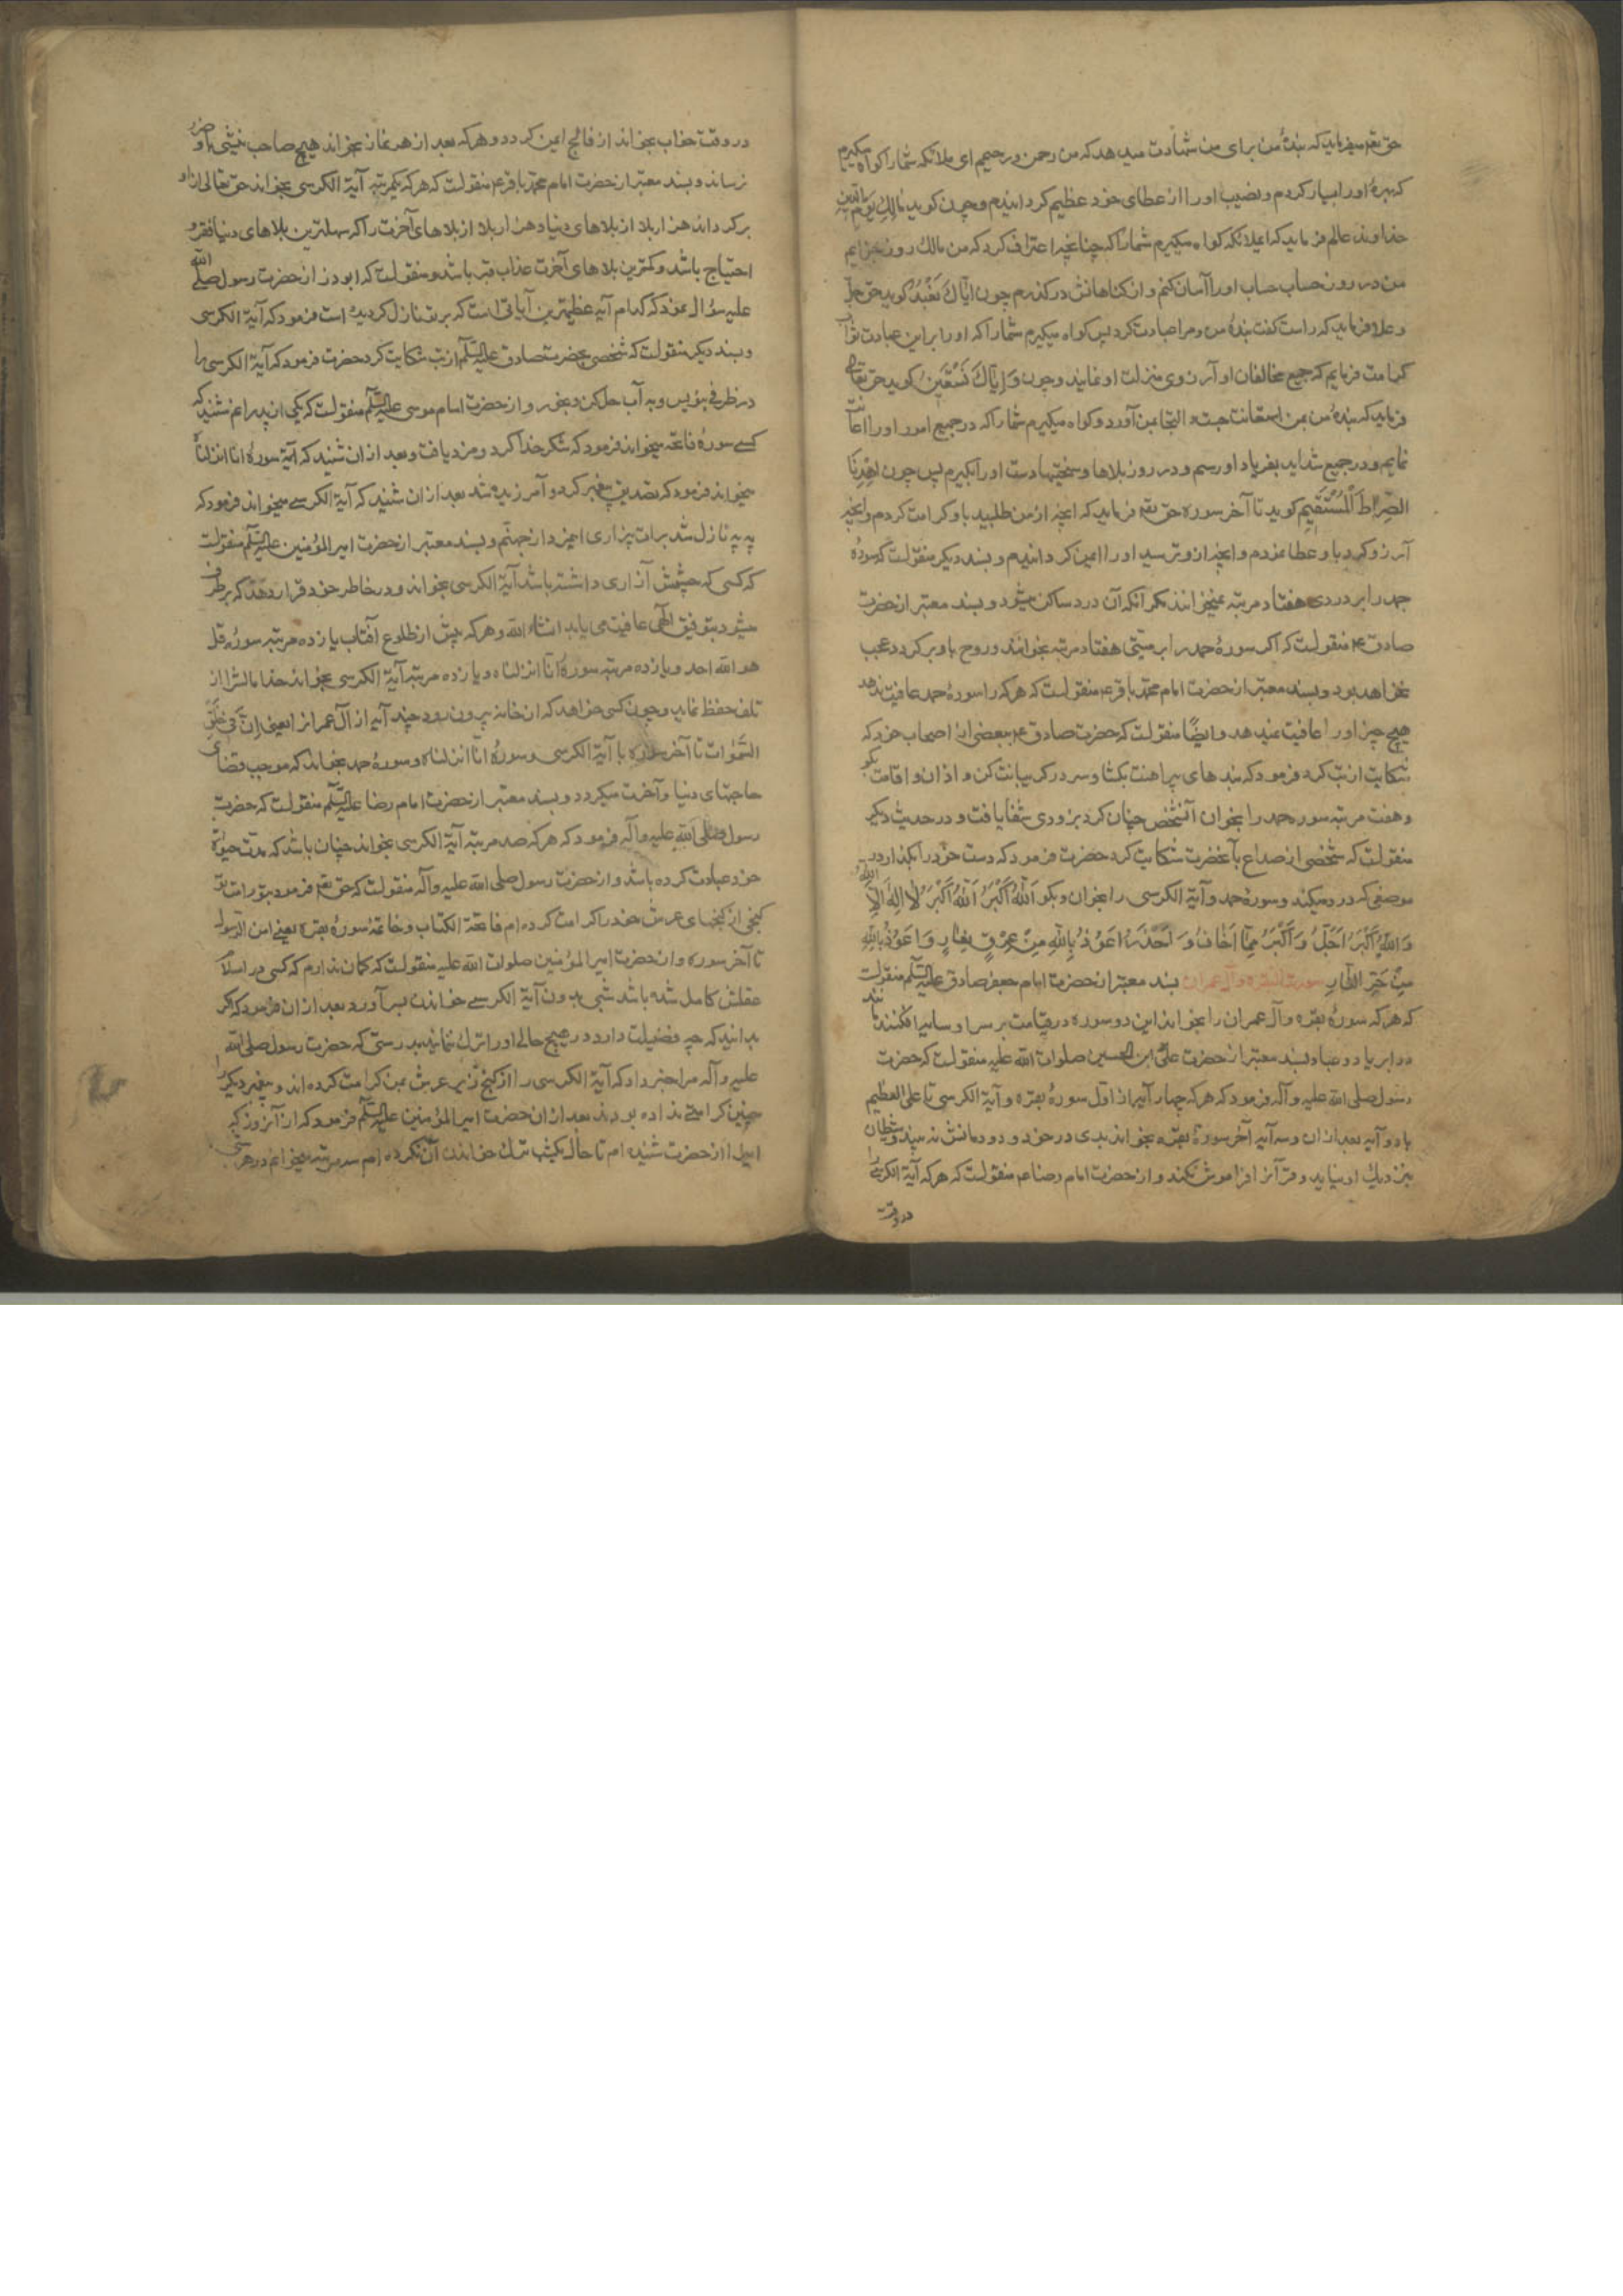 حق تعم میفرماید که بندهٔ من برای من شهادت میدهد که من رحمن و رحیمم ای ملائکه شما را گواه میگیرم
که بهرهٔ او را بسیار کردم و نصیب او را از عطای خود عظیم گردانیدم و چون گوید مالِكِ یَوْمِ الدّینِ
خداوند عالم فرماید که ایملائکه گواه میگیرم شما را که چنانچه اعتراف کرد که من مالك روز جزایم
من در روز حساب حساب او را آسان کنم و از گناهانش درگذرم چون اِیّاكَ نَعْبُدُ گوید حق جل
و علا فرماید که راست گفت بندهٔ من و مرا عبادت کرد پس گواه میگیرم شما را که او را بر این عبادت ثواب
کرامت فرمایم که جمیع مخالفان او آرزوی منزلت او نمایند و چون وَاِیّاكَ نَسْتَعینُ گوید حق تعالی
فرماید که بندهٔ من بمن استعانت جست و التجا بمن آورد و گواه میگیرم شما را که در جمیع امور او را اعانت
نمایم و در جمیع شداید بفریاد او رسم و در روز بلاها و سختیها دست او را بگیرم پس چون اِهْدِنَا
الصِّرٰاطَ الْمُسْتَقیمَ گوید تا آخر سوره حق تعم فرماید که آنچه از من طلبید باو کرامت کردم و آنچه
آرزو کرد باو عطا نمودم و آنچه ازو ترسید او را ایمن گردانیدم و بسند دیگر منقولست که سورهٔ
حمد را بر دردی هفتاد مرتبه نمیخوانند مگر آنکه آن درد ساکن میشود و بسند معتبر از حضرت
صادق ع منقولست که اگر سورهٔ حمد را بر میّتی هفتاد مرتبه بخوانند و روح باو برگردد عجب
نخواهد بود و بسند معتبر از حضرت امام محمّد باقر ع منقولست که هرکه را سورهٔ حمد عافیت ندهد
هیچ چیز او را عافیت نمیدهد و ایضًا منقولست که حضرت صادق ع ببعضی از اصحاب خود که
شکایت از تب کرد فرمود که بندهای پیراهنت بگشا و سر در گریبانت کن و اذان و اقامت بگو
و هفت مرتبه سوره حمد را بخوان آنشخص چنان کرد بزودی شفا یافت و در حدیث دیگر
منقولست که شخصی از صداع بآنحضرت شکایت کرد حضرت فرمود که دست خود را بگذار در
موضعی که درد میکند و سورهٔ حمد و آیة الکرسی را بخوان و بگو اَللّٰهُ اَکْبَرُ اَللّٰهُ اَکْبَرُ لٰا اِلٰهَ اِلَّا اللّٰهُ
وَاللّٰهُ اَکْبَرُ اَجَلُّ وَاَکْبَرُ مِمّٰا اَخٰافُ وَ اَحْذَرُ اَعُوذُ بِاللّٰهِ مِنْ عِرْقٍ نعّارٍ وَاَعُوذُ بِاللّٰهِ
مِنْ حَرِّ النّٰارِ سورة البقره و آل عمران بسند معتبر از حضرت امام جعفر صادق علیه السلم منقولست
که هرکه سورهٔ بقره و آل عمران را بخواند این دو سوره در قیامت بر سر او سایه افکنند مانند
دو ابر یا دو عبا و بسند معتبر از حضرت علی ابن الحسین صلوات الله علیه منقولست که حضرت
رسول صلی الله علیه و آله فرمود که هرکه چهار آیه از اول سورهٔ بقره و آیة الکرسی تا علی العظیم
با دو آیه بعد از ان و سه آیه آخر سورهٔ بقره بخواند بدی در خود و دودمانش نه بیند و شیطان
نزدیك او نیاید و قرآن را فراموش نکند و از حضرت امام رضا ع منقولست که هرکه آیة الکرسی را
در وقت
در وقت خواب بخواند از فالج ایمن گردد و هرکه بعد از هر نماز بخواند هیچ صاحب نیشی باو ضرر
نرساند و بسند معتبر از حضرت امام محمّد باقر ع منقولست که هرکه یکمرتبه آیة الکرسی بخواند حق تعالی ازاو
برگرداند هزار بلا از بلاهای دنیا و هزار بلا از بلاهای آخرت را که سهلترین بلاهای دنیا فقر و
احتیاج باشد و کمترین بلاهای آخرت عذاب قبر باشد و منقولست که ابوذر از حضرت رسول صلّی الله
علیه سؤال نمود که کدام آیه عظیمترین آیاتی است که بر تو نازل گردیده است فرمود که آیة الکرسی
و بسند دیگر منقولست که شخصی بحضرت صادق علیه السلم از تب شکایت کرد حضرت فرمود که آیة الکرسی را
در ظرفی بنویس و به آب حل کن و بخور و از حضرت امام موسی علیه السلم منقولست که یکی از پدرانم شنید که
کسے سورهٔ فاتحه میخواند فرمود که شکر خدا کرد و مزد یافت و بعد از ان شنید که سورهٔ انا انزلناه
میخواند فرمود که تصدیق پیغمبر کرد و آمرزیده شد بعد از ان شنید که آیة الکرسے میخواند فرمود که
به به نازل شد برات بیزاری این مرد از جهنّم و بسند معتبر از حضرت امیر المؤمنین علیه السلم منقولست
که کسی که چشمش آزاری داشته باشد آیة الکرسی بخواند و در خاطر خود قرار دهد که برطرف
میشود بتوفیق الهی عافیت می یابد انشاء الله و هرکه پیش از طلوع آفتاب یازده مرتبه سورهٔ قل
هو الله احد و یازده مرتبه سورهٔ انّا انزلناه و یازده مرتبه آیة الکرسی بخواند خدا مالش را از
تلف حفظ نماید و چون کسی خواهد که از خانه بیرون رود چند آیه از آل عمران را یعنی اِنَّ فی خَلْقِ
السَّمٰوات تا آخر سوره با آیة الکرسی و سورهٔ انّا انزلناه و سورهٔ حمد بخواند که موجب قضای
حاجتهای دنیا و آخرت میگردد و بسند معتبر از حضرت امام رضا علیه السلم منقولست که حضرت
رسول صلی الله علیه و آله فرمود که هرکه صد مرتبه آیة الکرسی بخواند چنان باشد که مدت حیوة
خود عبادت کرده باشد و از حضرت رسول صلی الله علیه و آله منقولست که حق تعم فرمود بتو و امت تو
گنجی از گنجهای عرش خود را کرامت کرده ام فاتحة الکتاب و خاتمهٔ سورهٔ بقره یعنے امن الرسول
تا آخر سوره و از حضرت امیر المؤمنین صلوات الله علیه منقولست که گمان ندارم که کسی در اسلام
عقلش کامل شده باشد شبی بدون آیة الکرسے خواندن بسر آورد بعد از ان فرمود که اگر
بدانید که چه فضیلت دارد در هیچ حالے او را ترك ننمائید بدرستی که حضرت رسول صلی الله
علیه و آله مرا خبر داد که آیة الکرسی را از گنج زیر عرش بمن کرامت کرده اند و پیغمبر دیگر را
چنین کرامتے نداده بودند بعد از ان حضرت امیر المؤمنین علیه السلم فرمود که از آنروز که
اینرا از حضرت شنیده ام تا حال یکشب ترك خواندن آن نکرده ام سه مرتبه میخوانم در هر شبی